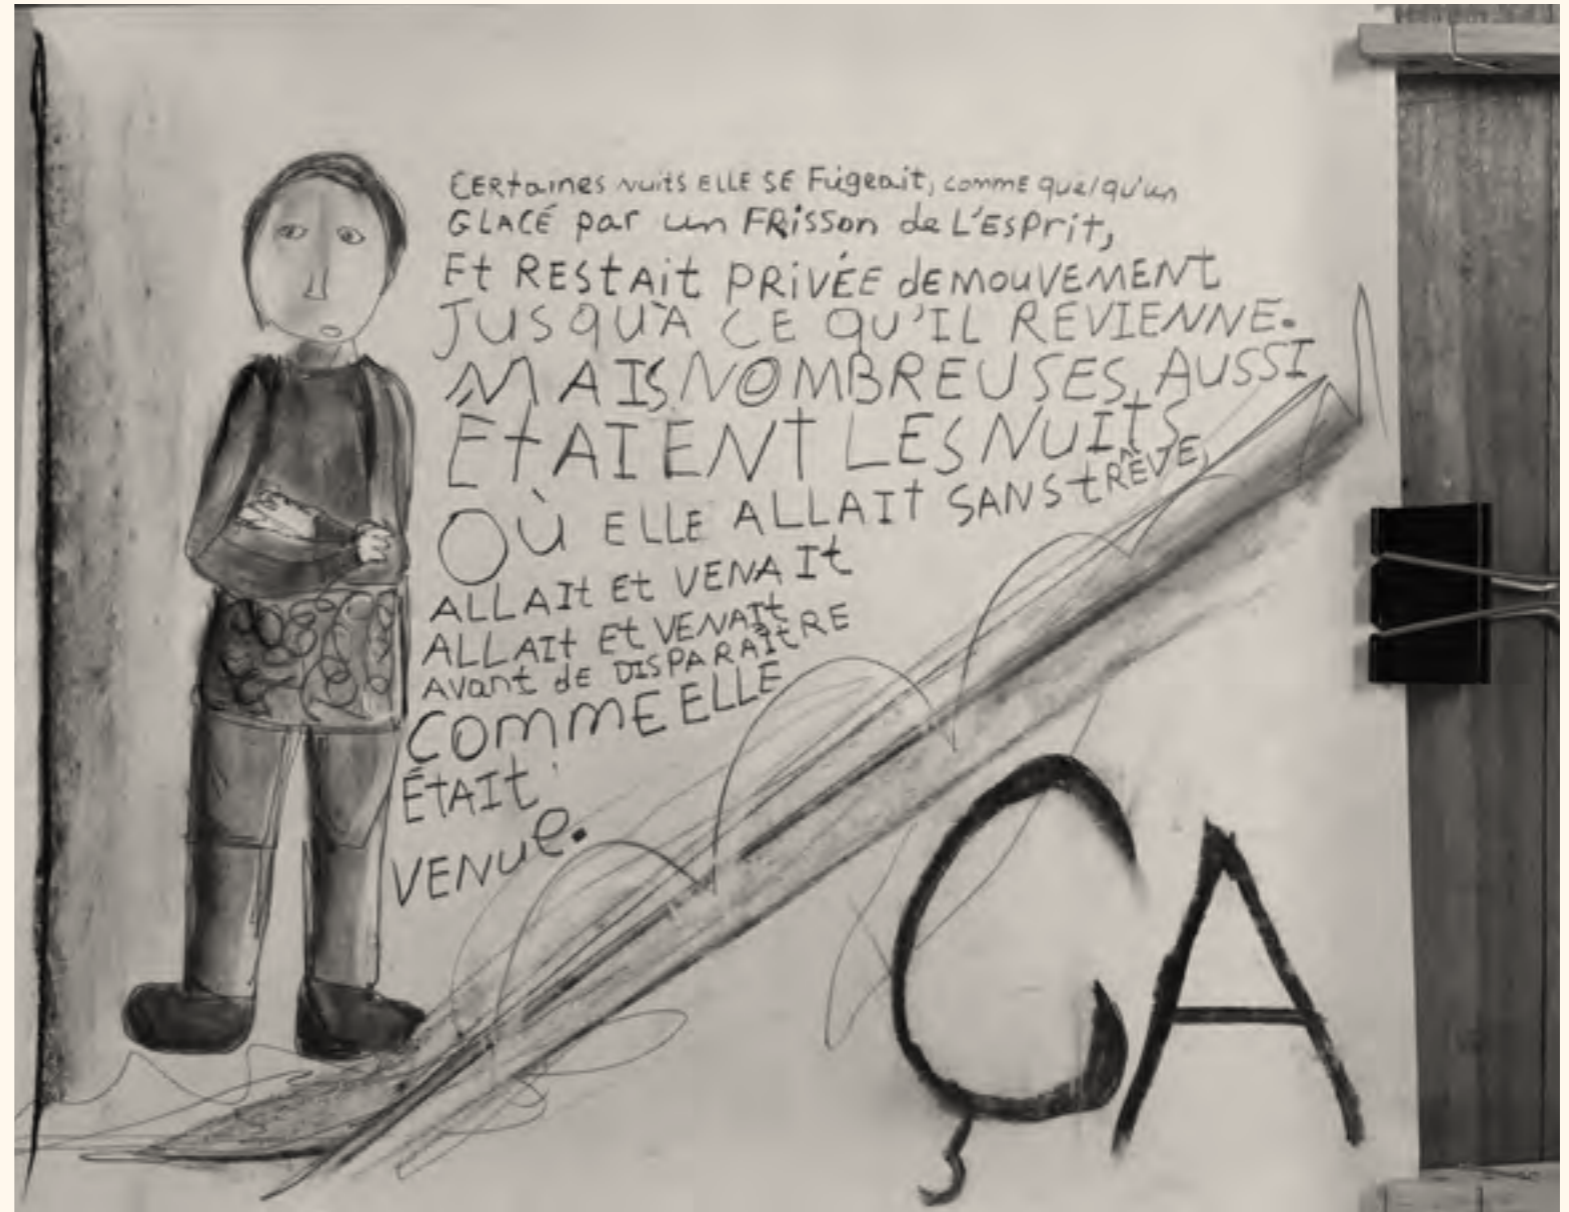 CERtaines nuits ELLE SE Fıgeait, comme quelqu'un
GLACÉ par un FRisson de L'EsPrit,
Et REStAit PRiVÉE de MOUVEMENt
JUSQU'À CE QU'IL REVIENNE.
MAIS NOMBREUSES AUSSI
ÉtAIENt LES NUItS
OÙ ELLE ALLAIt SANS tRÊVE,
ALLAIt Et VENAIt
ALLAIt Et VENAIt
AVant dE DISPARAÎtRE
COMME ELLE
ÉTAIt
VENUe.
ÇA